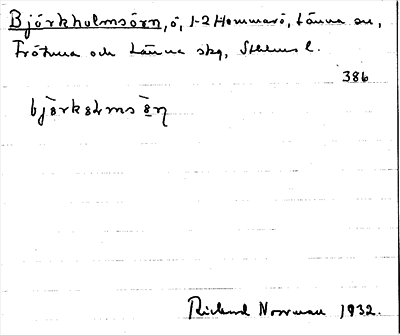 Björkholmsörn, ö, 1-2 Hammarö, Länna sn,
Frötuna och Länna skg, Sthlms l.
386
Rickard Norrman 1932.